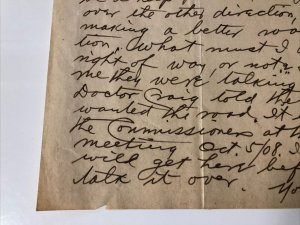 over the other direction,
making a better roa
tion. What must I
right of way or not?
me they were talking
Doctor Craig told the
wanted the road. It
the Commissioners at h
meeting Oct. 5/08. I
will get here bef
talk it over.